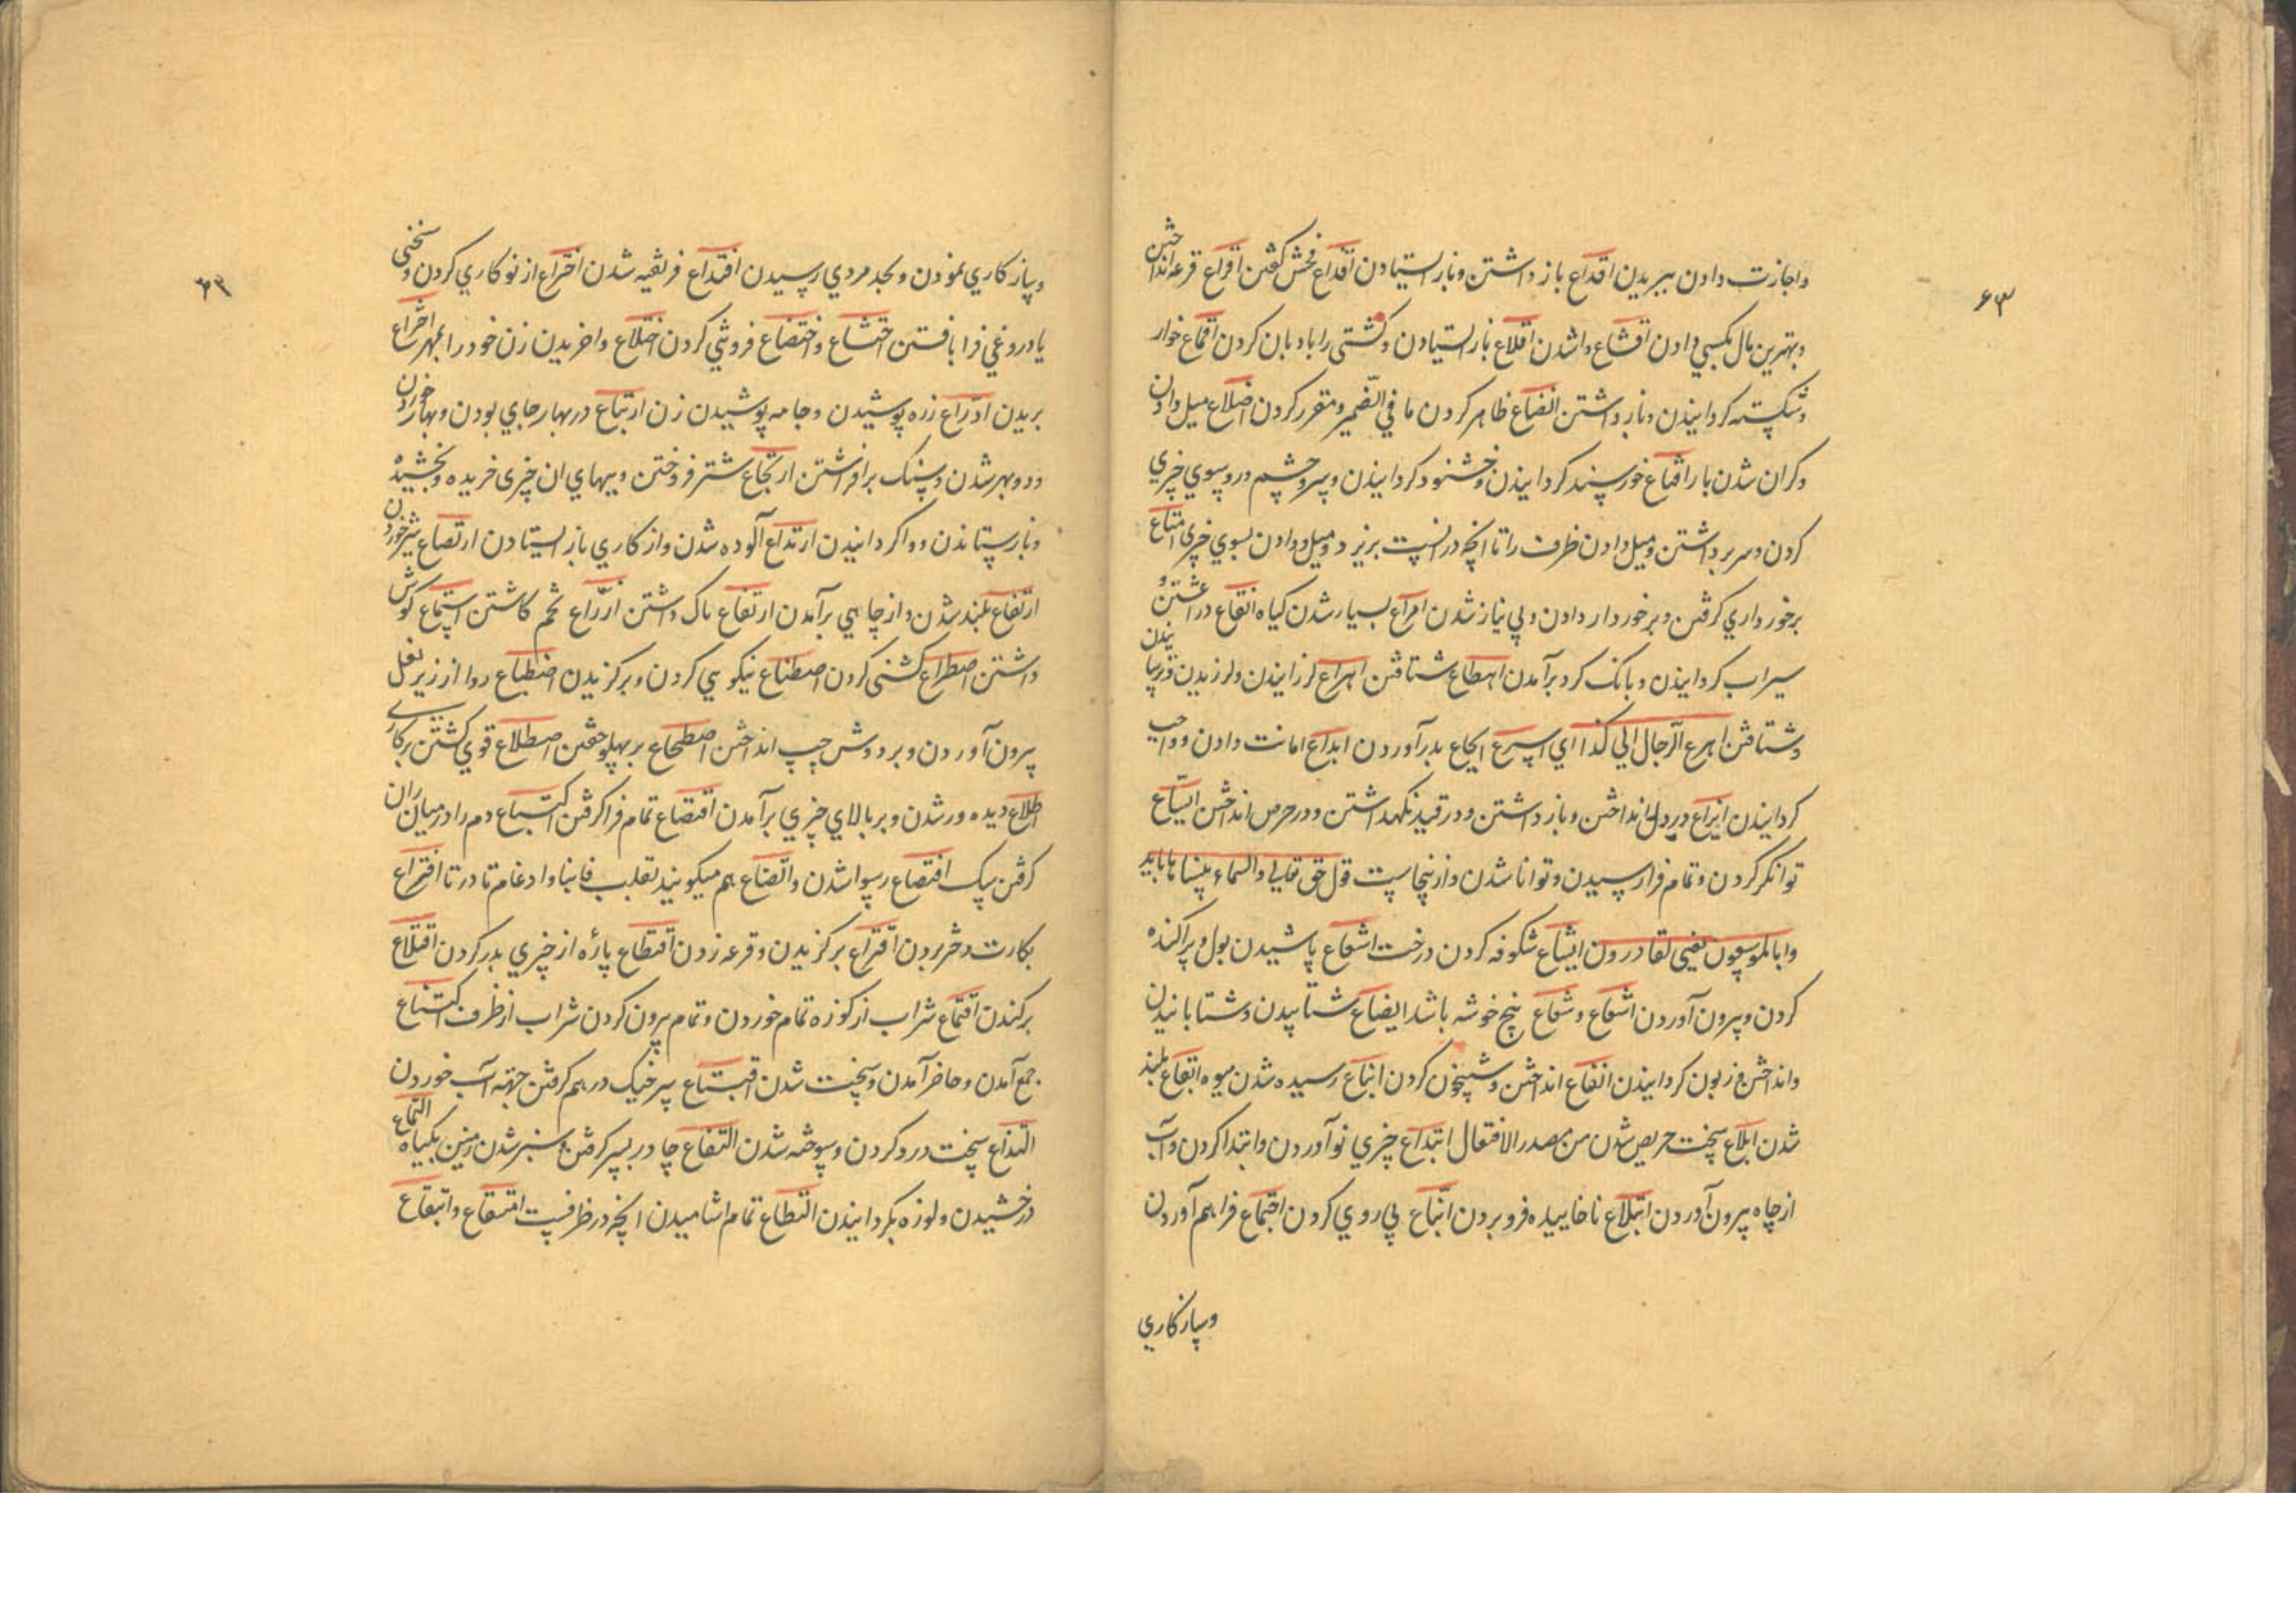 ۶۳
واجازت دادن ببریدن اقداع باز داشتن وباز ایستیادن اقذاع فحش کفتن اقراع قرعه انداختن
وبهترین مال بکسی دادن اقشاع واشدن اقلاع باز ایستیادن وکشتی را بادبان کردن اقماع خوار
وشکسته کردانیدن وباز داشتن الضاع ظاهر کردن ما في الضمیر ومقرر کردن اضلاع میل دادن
وکران شدن بار اقناع خورسند کردانیدن وخشنود کردانیدن وسر وچشم در وسوي چیزي
کردن وسر برداشتن ومیل دادن ظرف را تا انچه درانست بریزد ومیل دادن بسوي چیزی امتاع
برخورداري کرفتن وبرخوردار دادن وبي نیاز شدن امراع بسیار شدن کیاه انقاع در اغشتن و
سیراب کردانیدن وبانک کرد برآمدن اهطاع شتافتن اهراع لرزانیدن ولرزیدن
وشتافتن اهرع الرجال الي کذا اي اسرع ایجاع بدرآوردن ایداع امانت دادن وواجب
کردانیدن ایزاع در دل انداختن وباز داشتن ودر قید نکهداشتن ودر حرص انداختن ایساع
توانکر کردن وتمام فرا رسیدن وتوانا شدن وازینجاست قول حق تعالي والسماء بنیناها باید
وانا لموسعون یعنی لقادرون ایشاع شکوفه کردن درخت اشعاع پاشیدن بول وپراکنده
کردن وبیرون آوردن اشعاع وشعاع بنج خوشه باشد ایضاع شتابیدن وشتابانیدن
وانداختن وزبون کردانیدن انفاع انداختن وشبیخون کردن ایناع رسیده شدن میوه ایفاع بلند
شدن ایلاع سخت حریص شدن من مصدر الافتعال ابتداع چیزي نو آوردن وابتدا کردن وآب
از چاه بیرون آوردن ابتلاع ناخاییده فرو بردن اتباع پي روي کردن اجتماع فراهم آوردن
وساز کاري
وساز کاري نمودن وبحد مردي رسیدن اختداع فریفته شدن اختراع از نو کاري کردن وسخنی
یا دروغي فرا بافتن اختشاع واختضاع فروتني کردن اختلاع واخریدن زن خود را بمهر اختزاع
بریدن ادراع زره پوشیدن وجامه پوشیدن زن ارتباع در بهار جاي بودن وبهار خوردن
ودو بهر شدن وسنک برافراشتن ارتجاع شتر فروختن وببهاي ان چیزی خریده وبخشیده
وباز ستاندن وواکردانیدن ارتداع آلوده شدن واز کاري باز ایستادن ارتضاع شیر خوردن
ارتفاع بلند شدن واز جاهي برآمدن ارتفاع باک داشتن ازراع تخم کاشتن استماع کوش
داشتن اصطراع کشتی کردن اصطناع نیکویي کردن وبرکزیدن اضطباع ردا از زیر بغل
بیرون آوردن وبر دوش چپ انداختن اضطجاع بر پهلو خفتن اضطلاع قوي کشتن بر کاری
اطلاع دیده ور شدن وبر بالاي چیزي برآمدن اقتضاع تمام فرا کرفتن اکتساع دم را در میان ران
کرفتن سک افتضاع رسوا شدن واتضاع هم میکویند تقلب فا بتا وادغام تا در تا افتراع
بکارت دختر بردن اقتراع برکزیدن وقرعه زدن اقتطاع پارۀ از چیزي بدر کردن اقتلاع
برکندن اقتماع شراب از کوزه تمام خوردن وتمام بیرون کردن شراب از ظرف اکتناع
جمع آمدن وحاضر آمدن وسخت شدن اقتباع سر خیک درهم کرفتن جهة آب خوردن
التذاع سخت درد کردن وسوخته شدن التفاع چادر بسر کرفتن وسبز شدن زمین بکیاه التماع
درخشیدن ولوزه بکردانیدن التطاع تمام اشامیدن انچه در ظرفست امتقاع وابتقاع